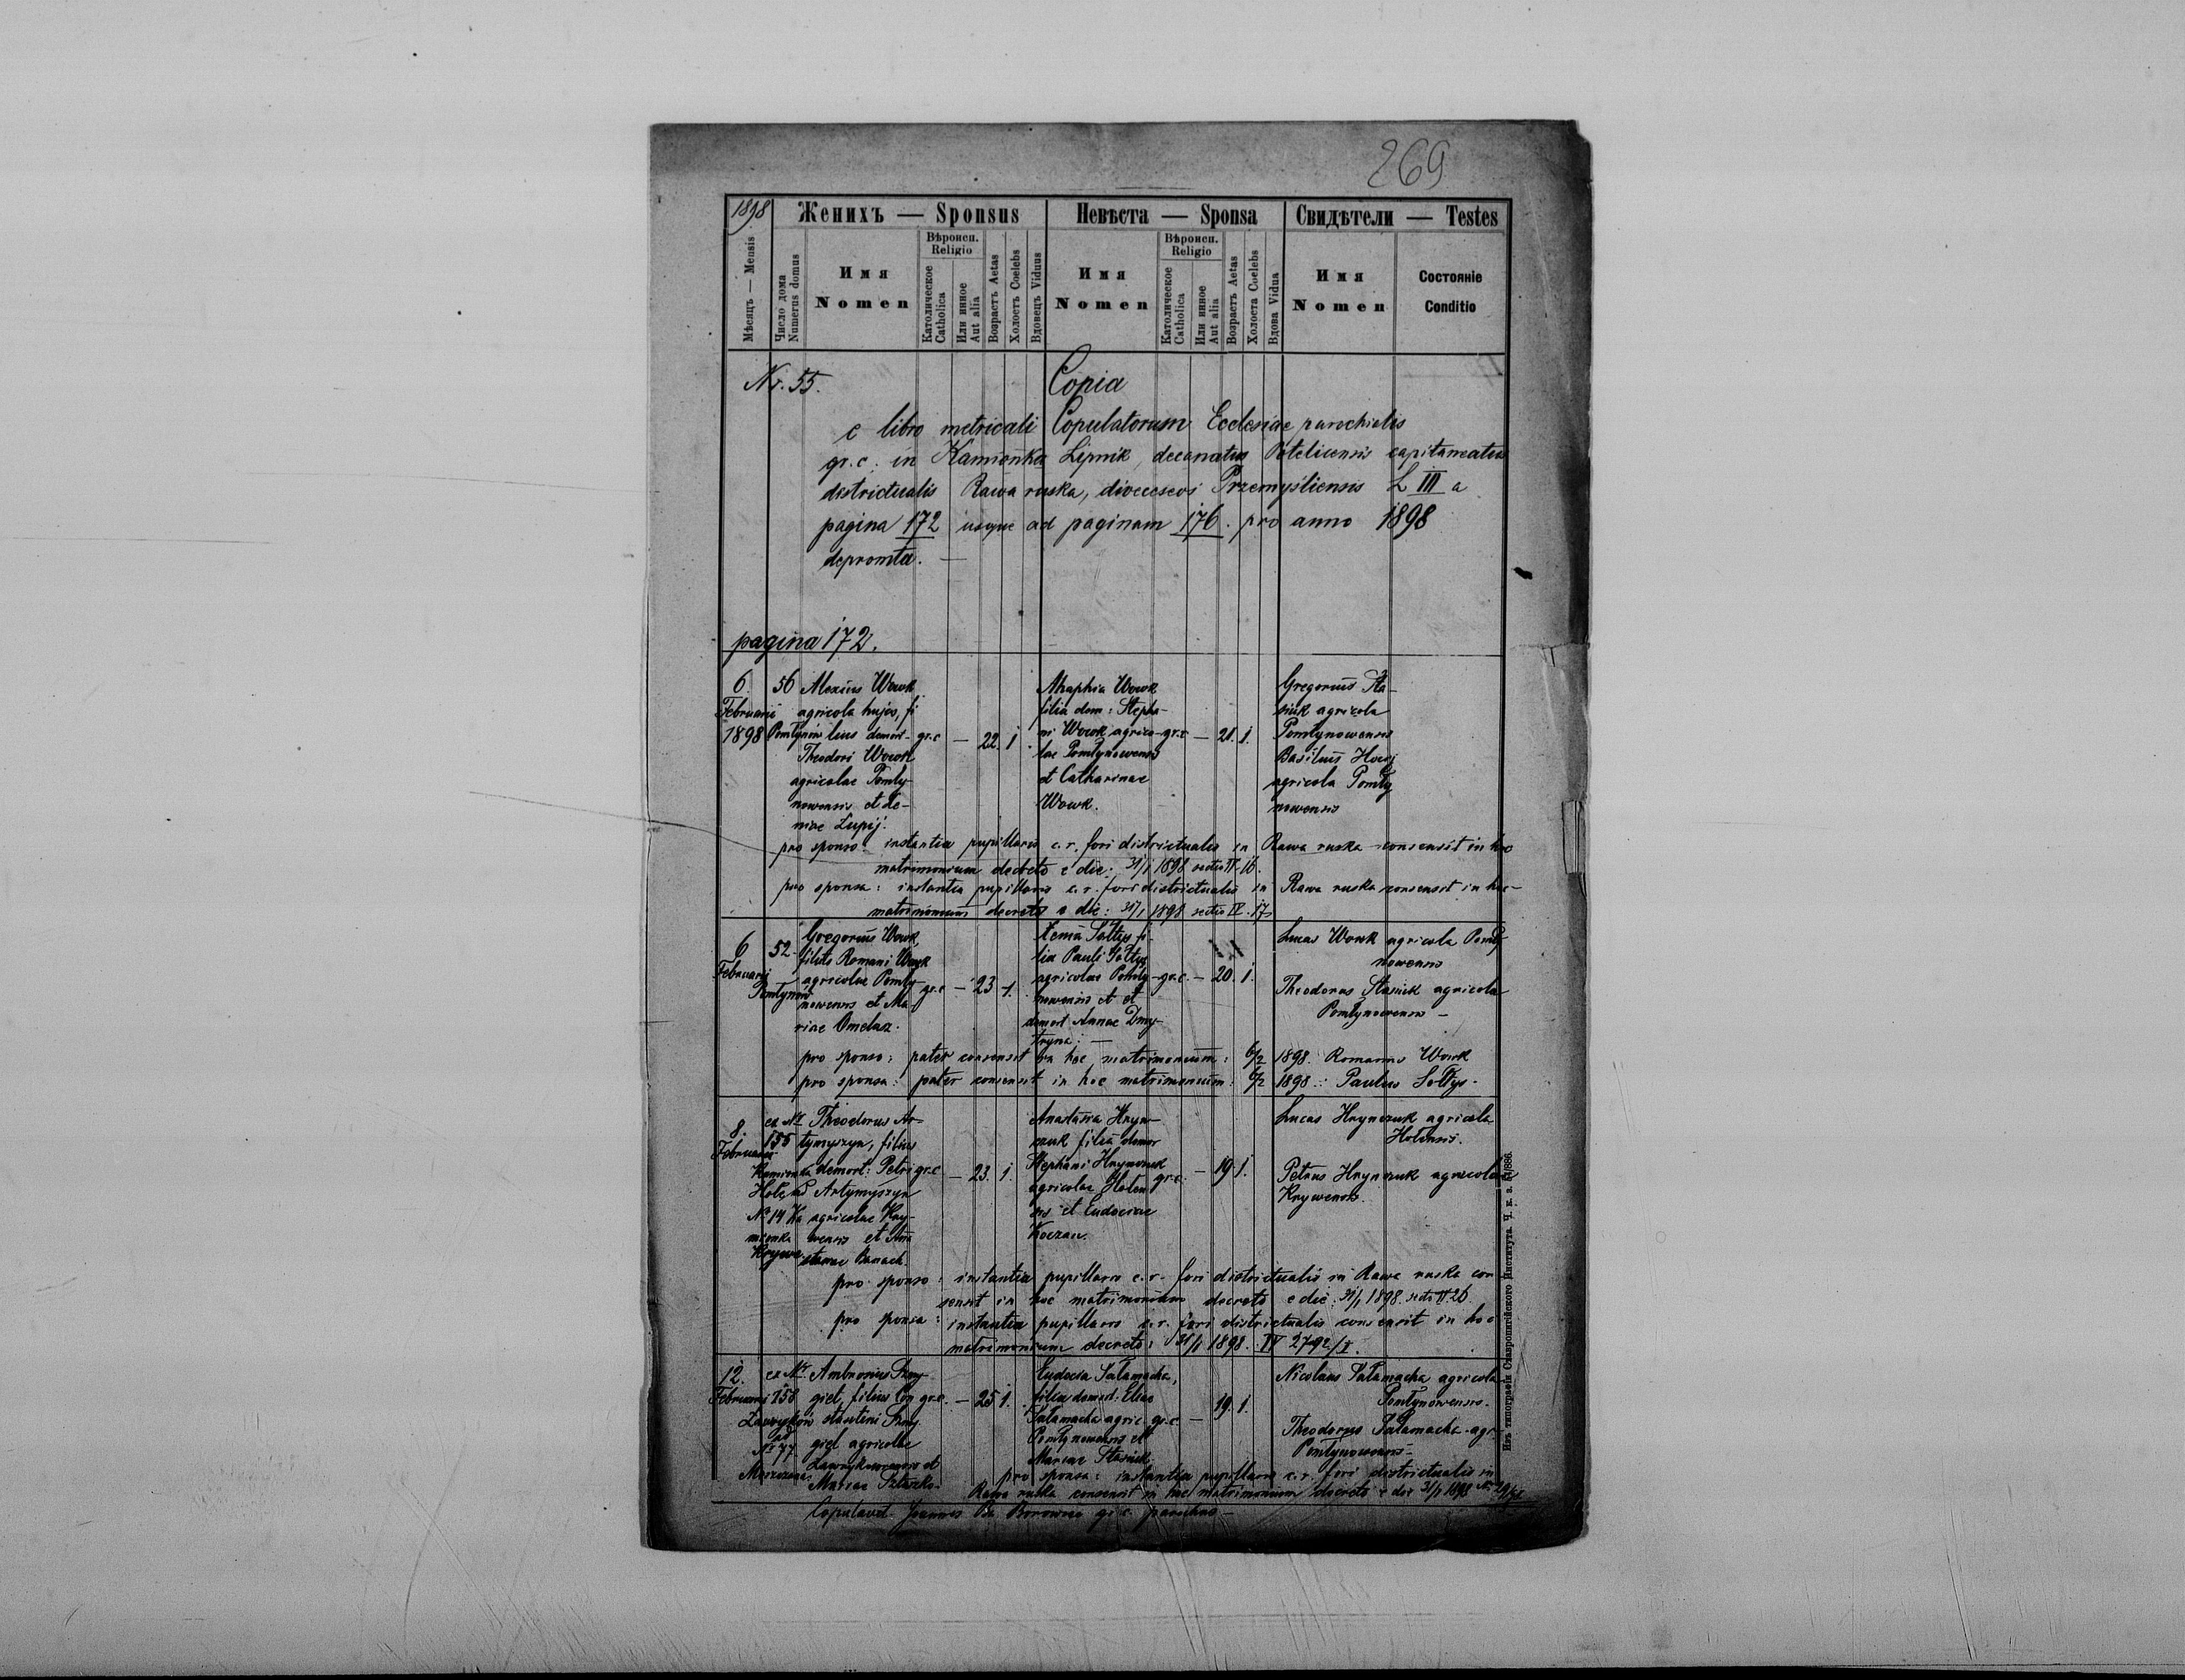 269
1898
Женихъ — Sponsus
Невѣста — Sponsa
Свидѣтели — Testes
Мѣсяцъ — Mensis
Число дома
Numerus domus
Имя
Nomen
Вѣроисп.
Religio
Католическое
Catholica
Или инное
Aut alia
Возрастъ Aetas
Холостъ Coelebs
Вдовецъ Viduus
Имя
Nomen
Вѣроисп.
Religio
Католическое
Catholica
Или инное
Aut alia
Возрастъ Aetas
Холоста Coelebs
Вдова Vidua
Имя
Nomen
Состояніе
Conditio
Nr. 55.
Copia
e libro metricali Copulatorum Ecclesiae parochialis
gr.c. in Kamionka Lipnik, decanatus Potelicensis capitaneatus
districtualis Rawa ruska, dioeceseos Przemysliensis L III a
pagina 172 usque ad paginam 176. pro anno 1898
depromta. —
pagina 172.
6.
Februarii
1898
56
Pomłynów
Alexius Wowk
agricola hujos, fi
lius demort.
Theodori Wowk
agricolae Pomły-
nowensis et
Łupij.
gr.c — 22. 1
Wowk
filia dem: Stepha-
ni Wowk agrico-
lae Pomłynowensis
et Catharinae
Wowk.
gr.c — 21. 1.
Gregorius Sta-
siuk agricola
Pomłynowensis
Basilius
agricola Pomły
nowensis
pro sponso: instantia pupillaris c.r. fori districtualis in Rawa ruska consensit in hoc
matrimonium decreto e die: 31/1 1898 16.
pro sponsa: instantia pupillaris c.r. fori districtualis in Rawa ruska consensit in hoc
matrimonium decreto e die: 31/1 1898 sectio IV. 17
6
Februarii
Pomłynów
52.
Gregorius Wowk
filius Romani Wowk
agricolae Pomły
nowensis et Ma
riae Omelaz.
gr.c — 23 1.
Xenia Sołtys fi
lia Pauli Sołtys
agricolae Pomły-
nowensis et et
demort Annae Dmy-
tryna. —
gr.c. — 20. 1.
Lucas Wowk agricola Pomły
nowensis
Theodorus Stasiuk agricola
Pomłynowensis —
pro sponso: pater consensit in hoc matrimonium: 6/2 1898. Romanus Wowk
pro sponsa: pater consensit in hoc matrimonium: 6/2 1898.: Paulus Sołtys.
8.
Februarii
ex Nr
155
Kamionka
ad
Nr 14 Ka
mionka
Krywa
Theodorus Ar-
tymyszyn, filius
demort: Petri
Artymyszyn
agricolae Kry-
wensis et Ana
stasiae Banach.
gr.c — 23. 1.
Anastasia Hryn-
czuk filia demor
Stephani Hrynczuk
agricolae Holen
sis et Eudociae
Koczan.
gr.c. — 19. 1.
Lucas Hrynczuk agricola
Holensis.
Petrus Hrynczuk agricola
Krywensis.
pro sponso: instantia pupillaris c.r. fori districtualis in Rawa ruska con
sensit in hoc matrimonium decreto e die: 31/1 1898. 26
pro sponsa: instantia pupillaris c.r. fori districtualis consensit in hoc
matrimonium decreto: 31/1 1898. IV 27.92/I.
12.
Februarii
ex Nr.
158
Zawyrków
ad
Nr 77
Ambrosius
giel filius Con
stantini
giel agricolae
et
Mariae
gr.c. — 25 1.
Eudocia Sałamacha,
filia demort. Eliae
Sałamacha agric
Pomłynowensis et
Mariae Stasiuk.
gr.c. — 19. 1.
Nicolaus Sałamacha agricola
Pomłynowensis.
Theodorus Sałamacha agr.
Pomłynowensis —
pro sponsa: instantia pupillaris c.r. fori districtualis in
Rawa ruska consensit in hoc matrimonium decreto e die 31/1 1898
Copulavit Joannes Borownic gr.c. parochus —
Изъ типографіи Ставропигійского Института. Ч. к. а.